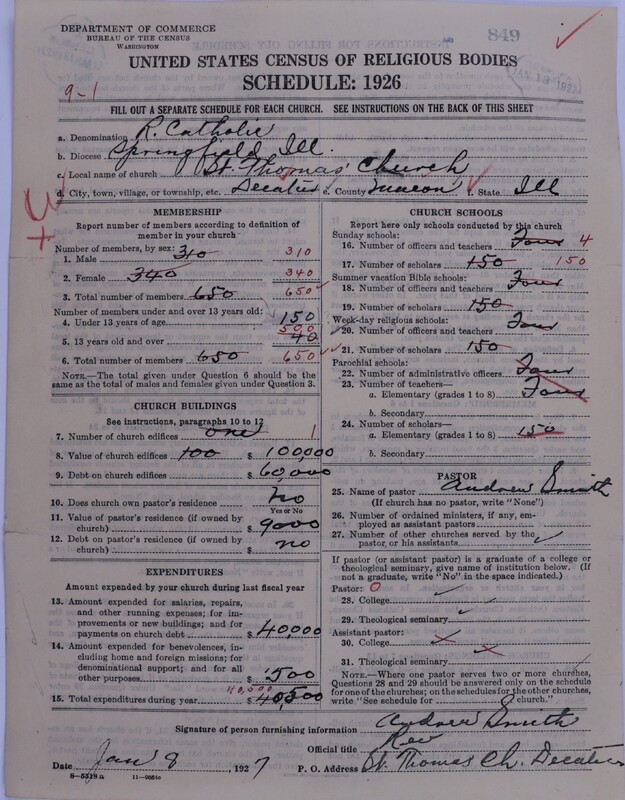 DEPARTMENT OF COMMERCE
BUREAU OF THE CENSUS
WASHINGTON
849
UNITED STATES CENSUS OF RELIGIOUS BODIES
SCHEDULE: 1926
9-1
FILL OUT A SEPARATE SCHEDULE FOR EACH CHURCH. SEE INSTRUCTIONS ON THE BACK OF THIS SHEET
a. Denomination R. Catholic
b. Diocese Springfield Ill.
c. Local name of church St. Thomas' Church
d. City, town, village, or township, etc. Decatur e. County Macon f. State Ill
MEMBERSHIP
Report number of members according to definition of member in your church
Number of members, by sex:
1. Male 310 310
2. Female 340 340
3. Total number of members 650 650
Number of members under and over 13 years old:
4. Under 13 years of age 150
5. 13 years old and over 500
6. Total number of members 650 650
NOTE.—The total given under Question 6 should be the same as the total of males and females given under Question 3.
CHURCH BUILDINGS
See instructions, paragraphs 10 to 12
7. Number of church edifices one 1
8. Value of church edifices 100 $ 100000
9. Debt on church edifices $ 60,000
10. Does church own pastor's residence No
Yes or No
11. Value of pastor's residence (if owned by church) $ 9000
12. Debt on pastor's residence (if owned by church) $ no
EXPENDITURES
Amount expended by your church during last fiscal year
13. Amount expended for salaries, repairs, and other running expenses; for improvements or new buildings; and for payments on church debt $ 40,000
14. Amount expended for benevolences, including home and foreign missions; for denominational support; and for all other purposes $ 500
40,500
15. Total expenditures during year $ 40,500
CHURCH SCHOOLS
Report here only schools conducted by this church
Sunday schools:
16. Number of officers and teachers Four 4
17. Number of scholars 150 150
Summer vacation Bible schools:
18. Number of officers and teachers Four
19. Number of scholars 150
Week-day religious schools:
20. Number of officers and teachers Four
21. Number of scholars 150
Parochial schools:
22. Number of administrative officers Four
23. Number of teachers—
a. Elementary (grades 1 to 8) Four
b. Secondary
24. Number of scholars—
a. Elementary (grades 1 to 8) 150
b. Secondary
PASTOR
25. Name of pastor Andrew Smith
(If church has no pastor, write "None")
26. Number of ordained ministers, if any, employed as assistant pastors
27. Number of other churches served by the pastor, or his assistants
If pastor (or assistant pastor) is a graduate of a college or theological seminary, give name of institution below. (If not a graduate, write "No" in the space indicated.)
Pastor: 0
28. College
29. Theological seminary
Assistant pastor:
30. College
31. Theological seminary
NOTE.—Where one pastor serves two or more churches, Questions 28 and 29 should be answered only on the schedule for one of the churches; on the schedules for the other churches, write "See schedule for church."
Signature of person furnishing information Andrew Smith
Official title Rev
Date Jan 8, 1927 P. O. Address St. Thomas Ch. Decatur